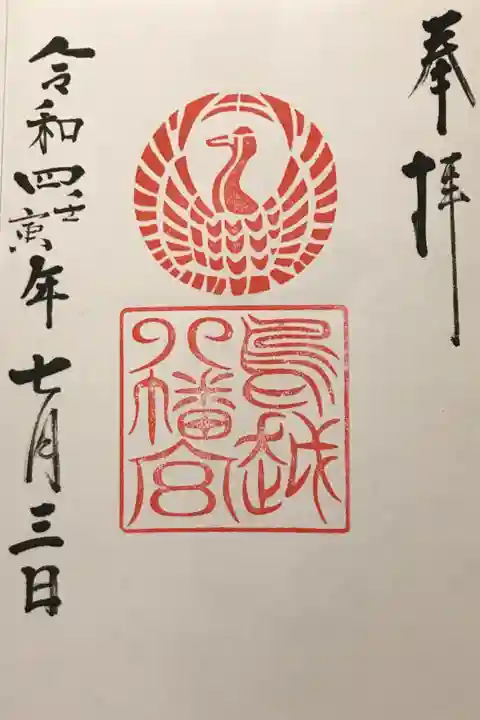 奉拝
鳥越
八幡宮
令和四壬寅年七月三日